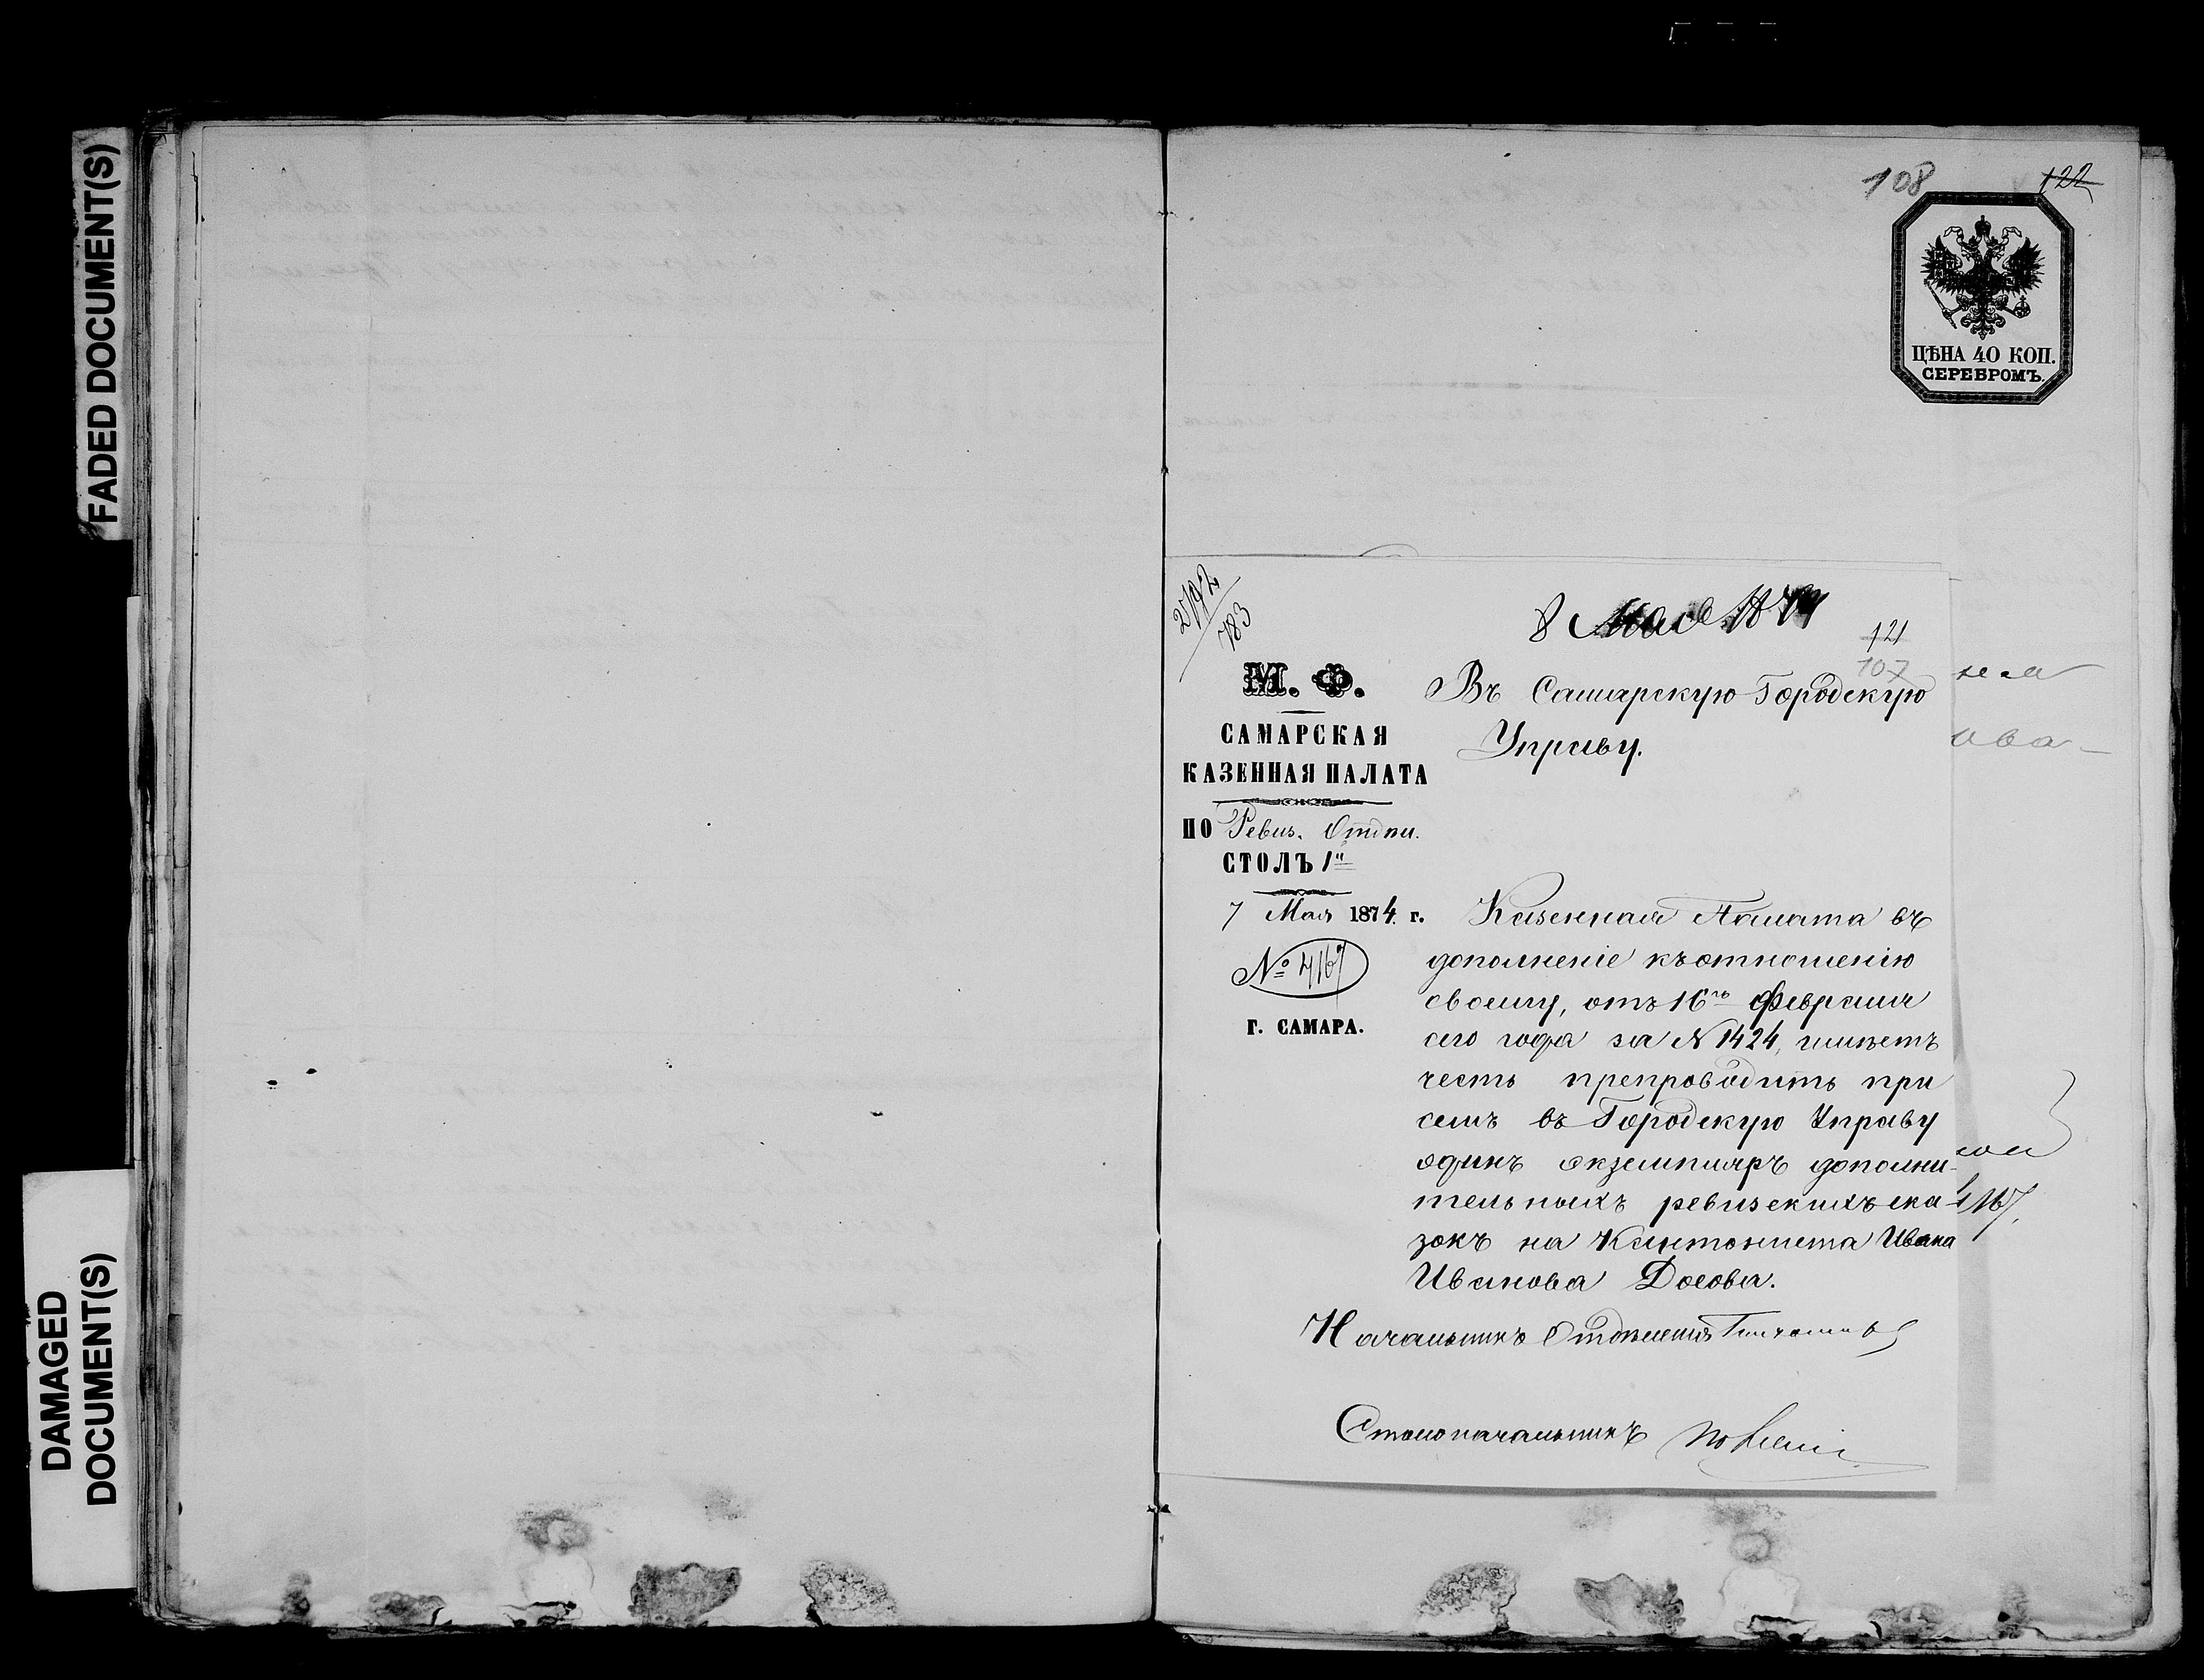 FADED DOCUMENT(S)
DAMAGED
DOCUMENT(S)
108
122
ЦѢНА 40 КОП.
СЕРЕБРОМЪ.
2792
783
8 Мая 1874
121
107
М. Ф.
САМАРСКАЯ
КАЗЕННАЯ ПАЛАТА
ПО Ревиз. Отдѣл.
СТОЛЪ 1й
7 Мая 1874 г.
№ 4167
Г. САМАРА.
Въ Самарскую Городскую
Управу.
Казенная Палата въ
дополненіе къ отношенію
своему, отъ 16го Февраля
сего года за № 1424, имѣетъ
честь препроводить при
семъ въ Городскую Управу
одинъ экземпляръ дополни-
тельныхъ ревизскихъ ска-
зокъ на Кантониста Ивана
Иванова Досова.
Начальникъ Отдѣленія
Столоначальникъ